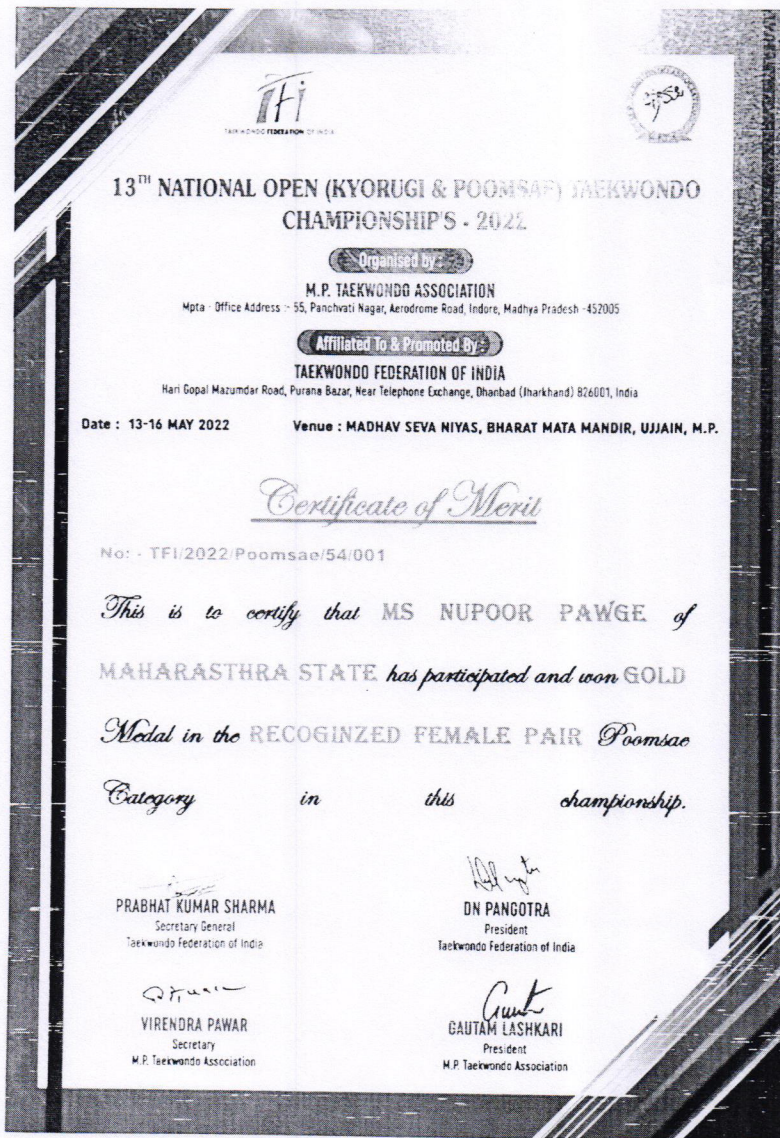 TFI
TAEKWONDO FEDERATION OF INDIA
13TH NATIONAL OPEN (KYORUGI & POOMSAE) TAEKWONDO
CHAMPIONSHIP'S - 2022
Organised by :
M.P. TAEKWONDO ASSOCIATION
Mpta - Office Address :- 55, Panchvati Nagar, Aerodrome Road, Indore, Madhya Pradesh -452005
Affiliated To & Promoted By :
TAEKWONDO FEDERATION OF INDIA
Hari Gopal Mazumdar Road, Purana Bazar, Near Telephone Exchange, Dhanbad (Jharkhand) 826001, India
Date : 13-16 MAY 2022 Venue : MADHAV SEVA NIYAS, BHARAT MATA MANDIR, UJJAIN, M.P.
Certificate of Merit
No: - TFI/2022/Poomsae/54/001
This is to certify that MS NUPOOR PAWGE of
MAHARASTHRA STATE has participated and won GOLD
Medal in the RECOGINZED FEMALE PAIR Poomsae
Category in this championship.
PRABHAT KUMAR SHARMA
Secretary General
Taekwondo Federation of India
DN PANGOTRA
President
Taekwondo Federation of India
VIRENDRA PAWAR
Secretary
M.P. Taekwondo Association
GAUTAM LASHKARI
President
M.P. Taekwondo Association